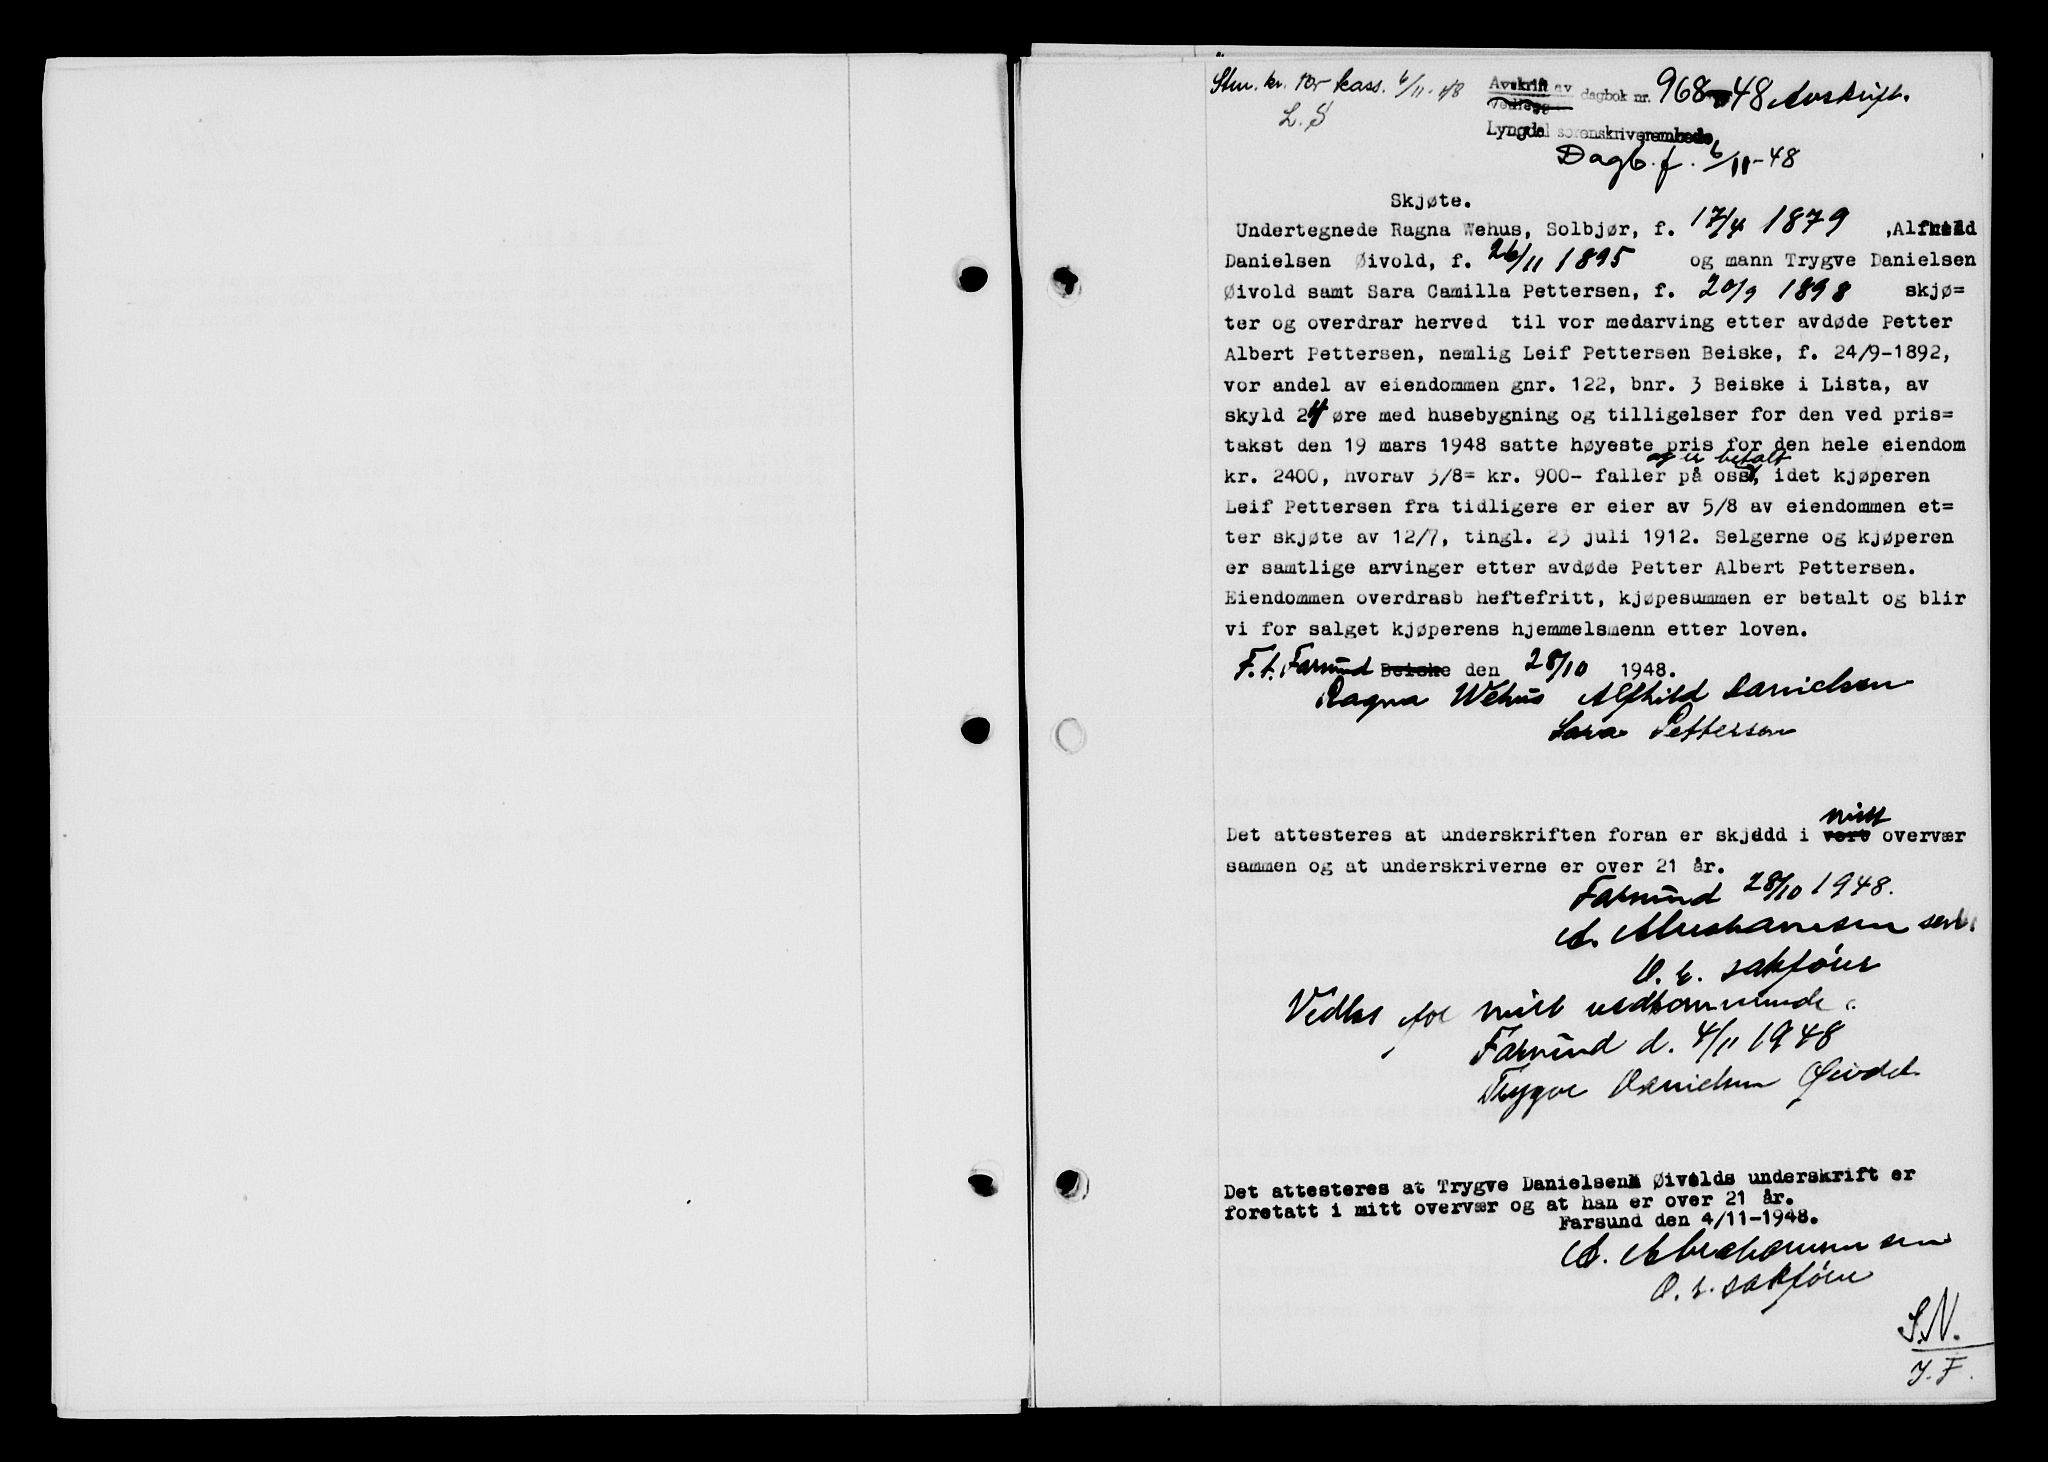 Stm. kr. 10r kass. 6/11-48
L. S
Avskrift av
Vedlegg
dagbok nr. 968-48 Avskrift.
Lyngdal sorenskriverembede
Dagb. f. 6/11-48
Skjøte.
Undertegnede Ragna Wehus, Solbjør, f. 17/4 1879 ,Alfhild
Danielsen Øivold, f. 26/11 1895 og mann Trygve Danielsen
Øivold samt Sara Camilla Pettersen, f. 20/9 1898 skjø=
ter og overdrar herved til vor medarving etter avdøde Petter
Albert Pettersen, nemlig Leif Pettersen Beiske, f. 24/9-1892,
vor andel av eiendommen gnr. 122, bnr. 3 Beiske i Lista, av
skyld 24 øre med husebygning og tilligelser for den ved pris=
takst den 19 mars 1948 satte høyeste pris for den hele eiendom
og er betalt
kr. 2400, hvorav 3/8= kr. 900- faller på oss, idet kjøperen
Leif Pettersen fra tidligere er eier av 5/8 av eiendommen et=
ter skjøte av 12/7, tingl. 23 juli 1912. Selgerne og kjøperen
er samtlige arvinger etter avdøde Petter Albert Pettersen.
Eiendommen overdrasb heftefritt, kjøpesummen er betalt og blir
vi for salget kjøperens hjemmelsmenn etter loven.
F.t. Farsund Beiske den 28/10 1948.
Ragna Wehus Alfhild Danielsen
Sara Pettersen
mitt
Det attesteres at underskriften foran er skjedd i vort overvær
sammen og at underskriverne er over 21 år.
Farsund 28/10 1948.
A. Abrahamsen sen.
O. r. sakfører
Vedtas for mitt vedkommende.
Farsund d. 4/11 1948
Trygve Danielsen Øivold
Det attesteres at Trygve Danielsen Øivolds underskrift er
foretatt i mitt overvær og at han er over 21 år.
Farsund den 4/11-1948.
A. Abrahamsen sen
O. r. sakfører
S.N.
J. F.